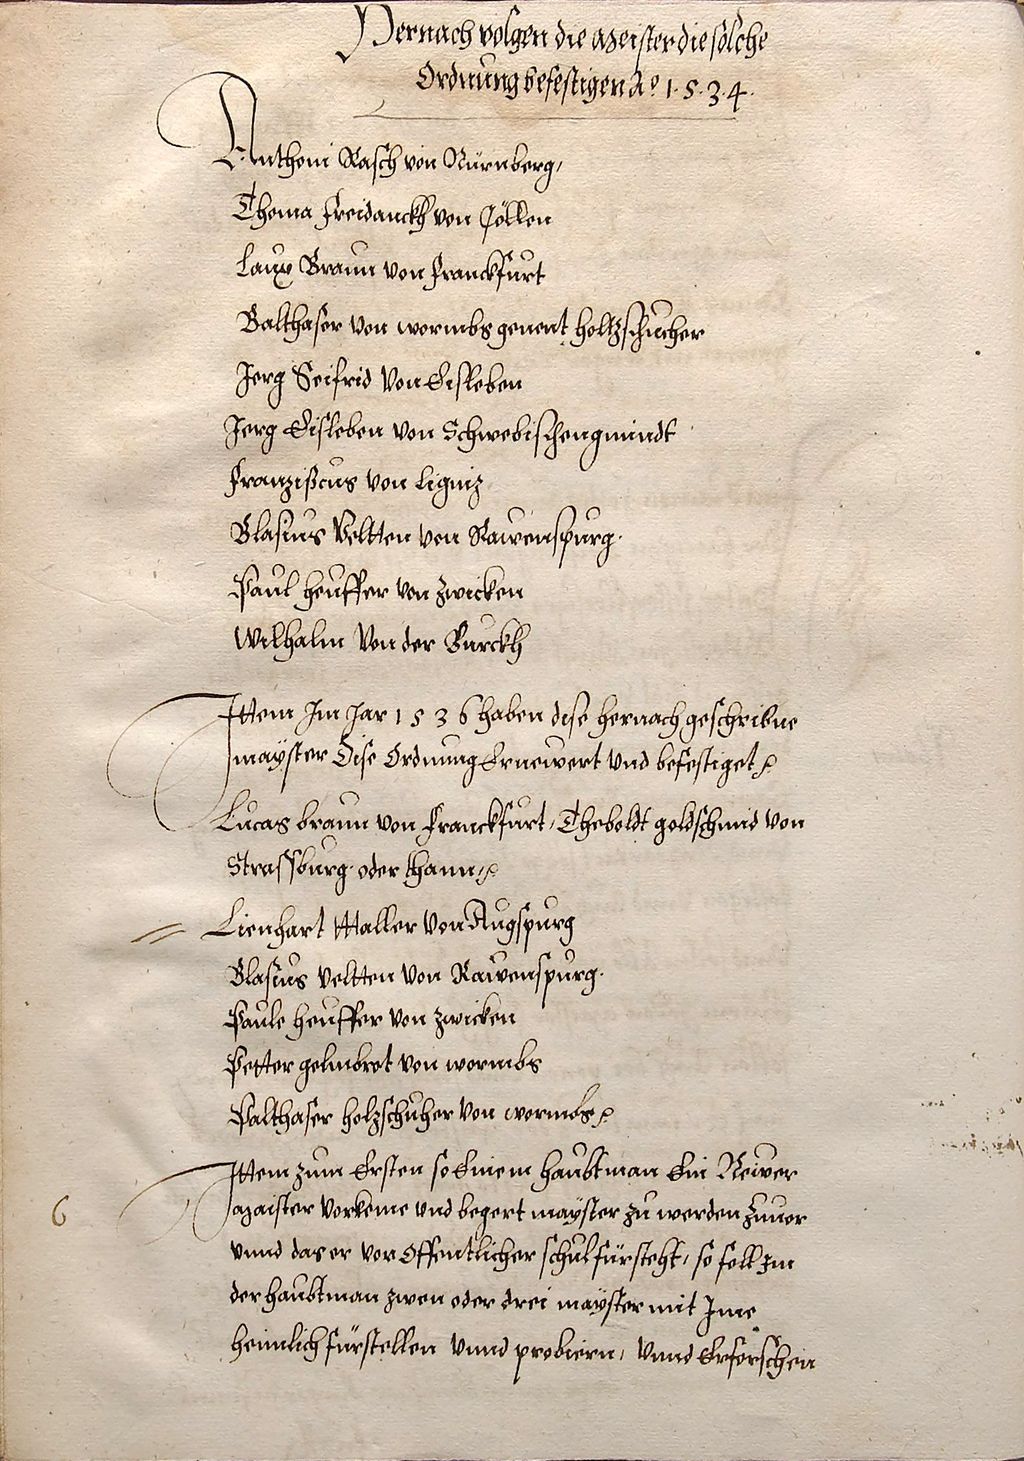 Hernach volgen die Meister die solche
Ordnung befestigen Aº 1·5·3·4·
Anthoni Rasch von Nürnberg,
Thoma Freidanckh von Cöllen
Laux Braun von Franckfurt
Balthaser von wormbs genent holtzschucher
Jerg Seifrid Von Eisleben
Jerg Eisleben von Schwebischengmindt
Franzißcus von ligniz
Blasius Veltten von Rawenspurg·
Paul heuffer von zwicken
Wilhalm Von der Burckh
Ittem Im Jar 1536 haben dise hernach geschribne
mayster Dise Ordnung Ernewert und befestiget
Lucas braun von Franckfurt, Theboldt goldschmid von
Strassburg· oder thann
Lienhart Haller Von Augspurg
Blasius veltten von Rawenspurg·
Paule heuffer von zwicken
Petter gelmbrot von wormbs
Palthaser holzschuher von wormbs
6
Ittem zum Ersten so Einem haubtman Ein Newer
Maister vorkeme und begert mayster zu werden zuuor
vnnd das er vor offentlicher schul fürsteht, so soll Im
der haubtman zwen oder drei mayster mit Ime
heimlich fürstellen vnnd probiern, vnnd Erforschen